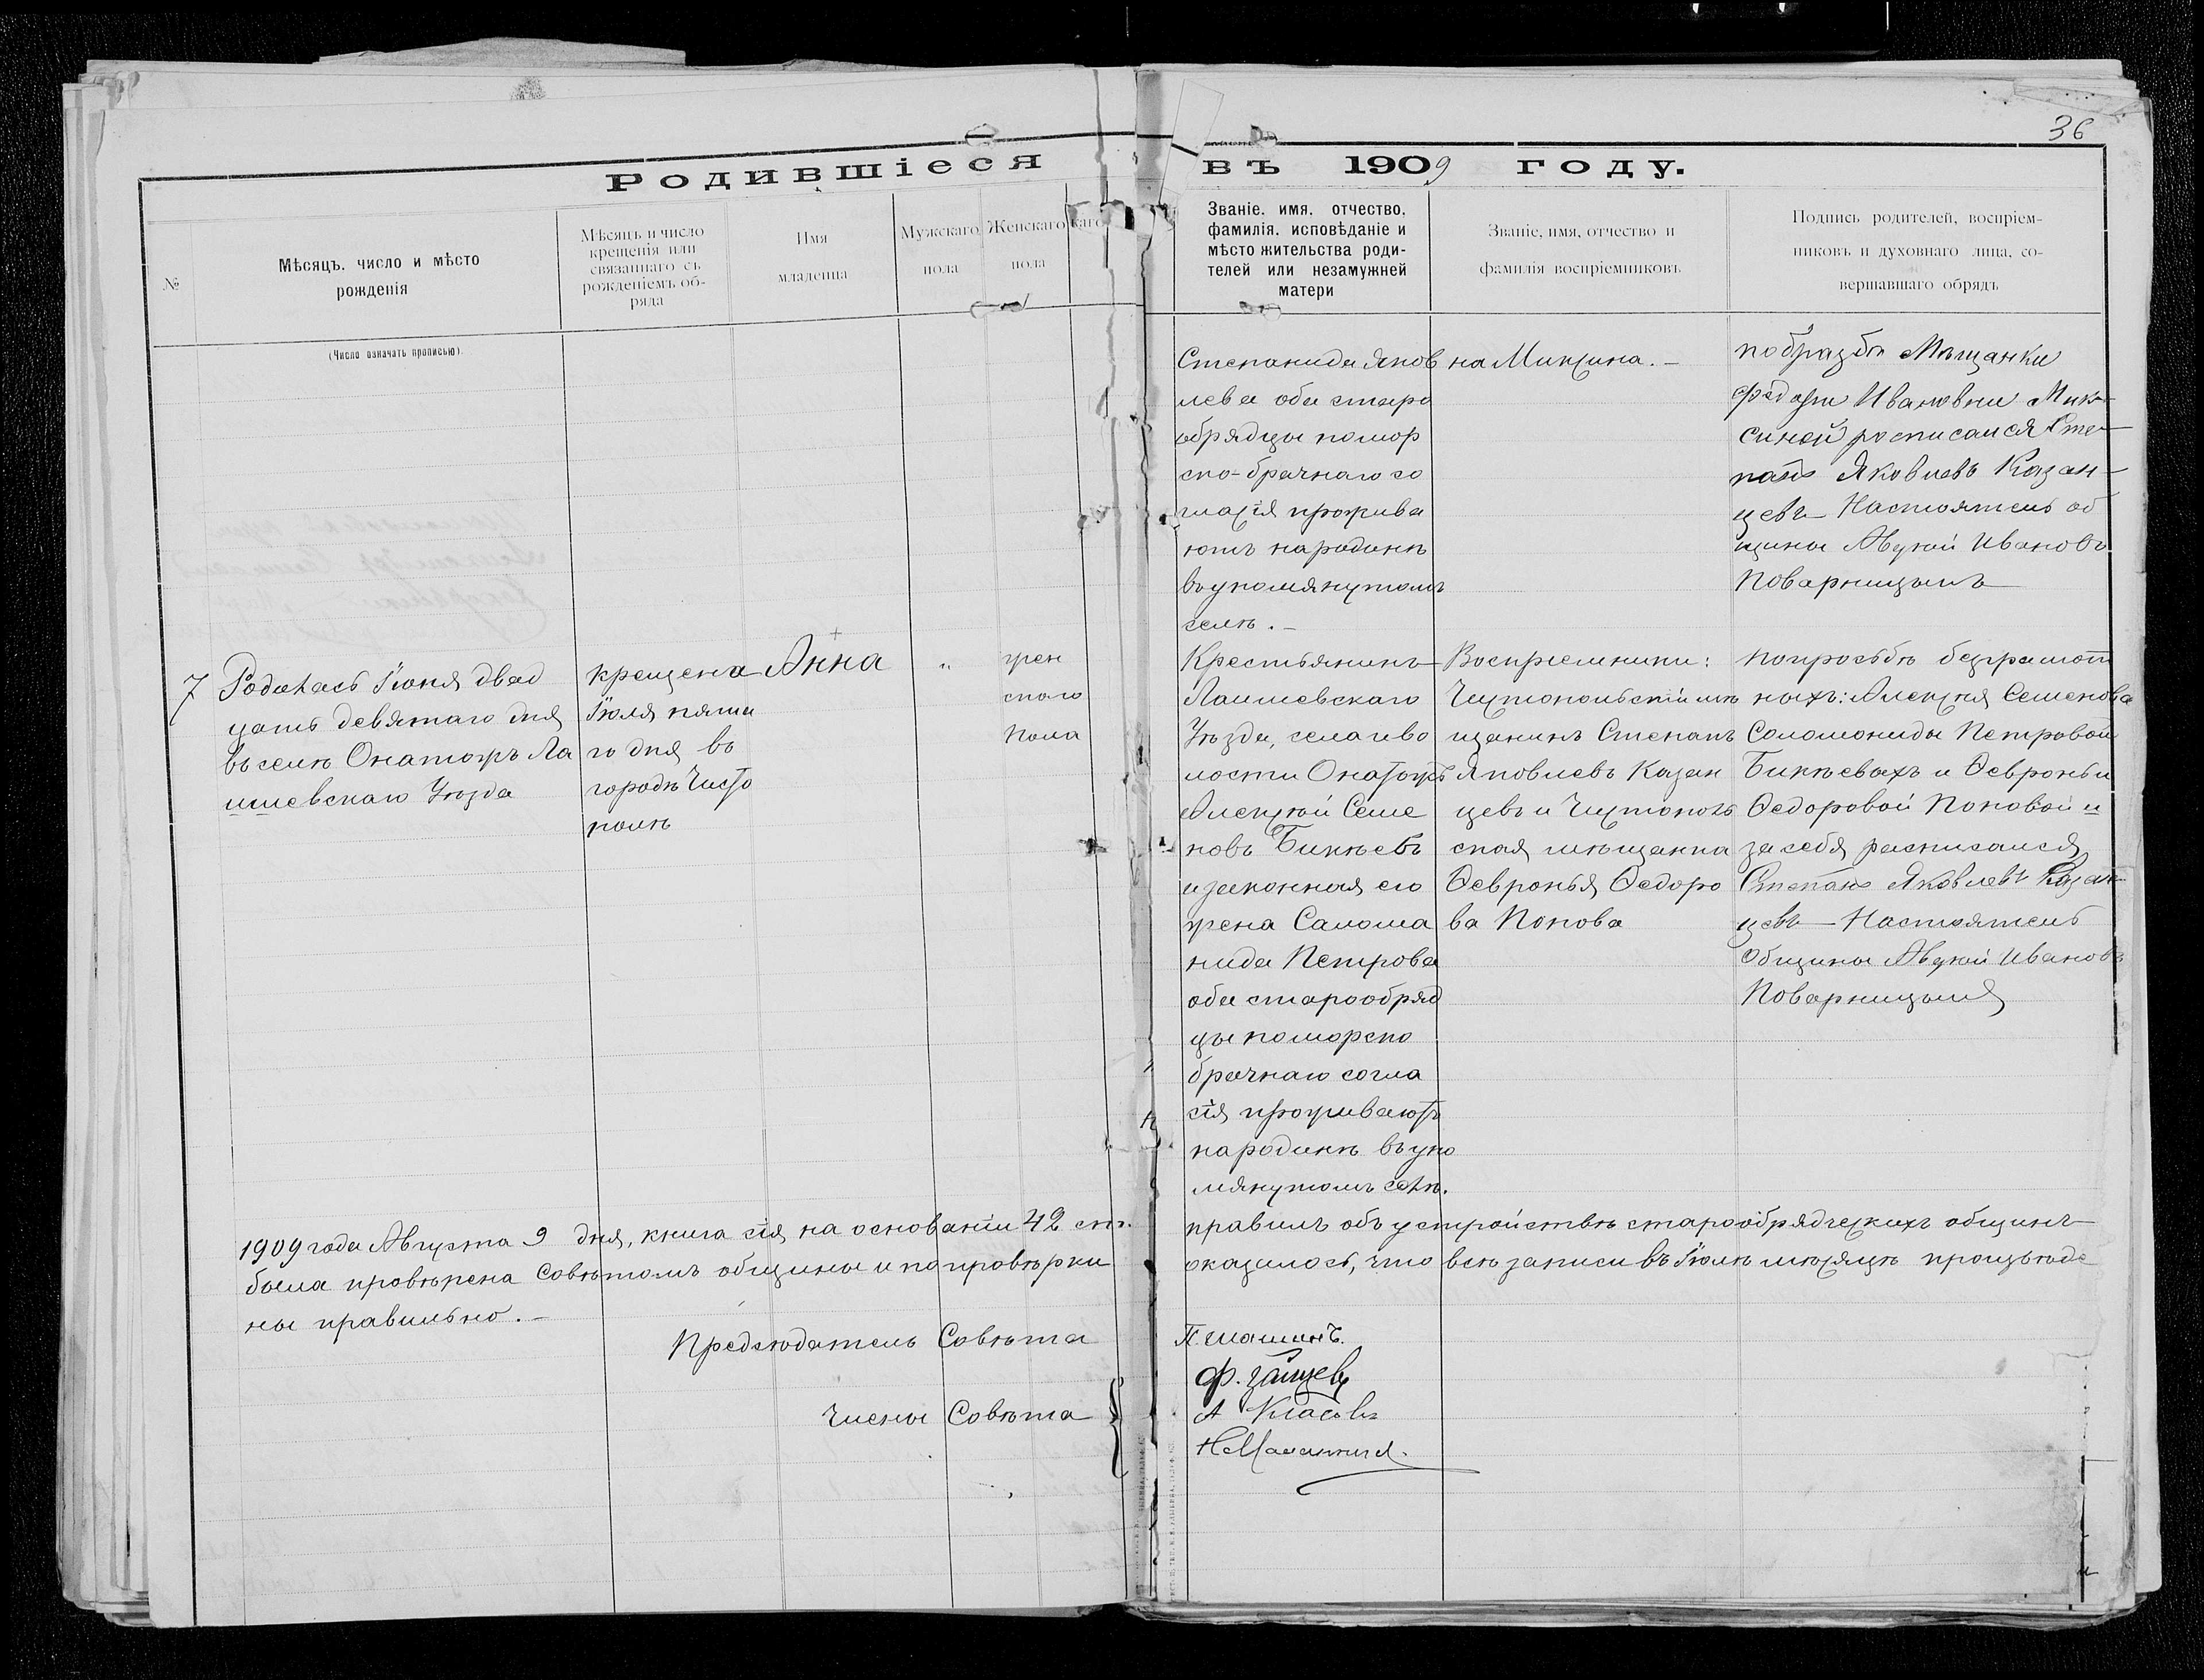 36
Родившіеся въ 1909 году.
№
Мѣсяцъ, число и мѣсто
рожденія
Мѣсяцъ и число
крещенія или
связаннаго съ
рожденіемъ об-
ряда
Имя
младенца
Мужскаго
пола
Женскаго
пола
каго
Званіе, имя, отчество,
фамилія, исповѣданіе и
мѣсто жительства роди-
телей или незамужней
матери
Званіе, имя, отчество и
фамилія воспріемниковъ
Подпись родителей, воспріем-
никовъ и духовнаго лица, со-
вершавшаго обрядъ
(Число означать прописью).
Степанида Яков
лева оба старо
обрядцы помор
ско-брачнаго со
гласія прожива
ютъ народинѣ
въ упомянутомъ
селѣ.-
на Миксина.-
Мѣщанки
Ивановны Мик-
синой росписался Сте-
панъ Яковлевъ Казан-
цевъ- Настоятель об
щины Авукой Ивановъ
Поварницынъ
7
Родилась Іюня двад
цать девятаго дня
въ селѣ Онатожъ Ла
ишевскаго Уѣзда
крещена
Іюля пята
го дня въ
городѣ Чисто
полѣ
Анна
"
жен
скаго
пола
Крестьянинъ
Лаишевскаго
Уѣзда, села и во
лости Онатожъ
Алексѣй Семе
новъ Бикѣевъ
и законная его
жена Саломо
нида Петрова
оба старообряд
цы поморско
брачнаго согла
сія проживаютъ
народинѣ въ упо
мянутомъ селѣ.
Воспріемники:
Чистопольскій мѣ
щанинъ Степанъ
Яковлевъ Казан
цевъ и Чистополь
ская мѣщанка
Ѳевронья Ѳедоро
ва Попова
по просьбѣ безграмот
ныхъ: Алексѣя Семенова
Соломониды Петровой
Бикѣевыхъ и Ѳевроньи
Ѳедоровой Поповой и
за себя расписался
Степанъ Яковлевъ Казан-
цевъ- Настоятель
Общины Авукой Ивановъ
Поварницынъ
1909 года Августа 9 дня, книга сія на основаніи 42 ст. правилъ объ устройствѣ старообрядческихъ общинъ
была провѣрена Совѣтомъ общины и по провѣрки оказалось, что всѣ записи въ Іюлѣ мѣсяцѣ произведе
ны правильно.-
Предсѣдатель Совѣта
Члены Совѣта
А Власовъ